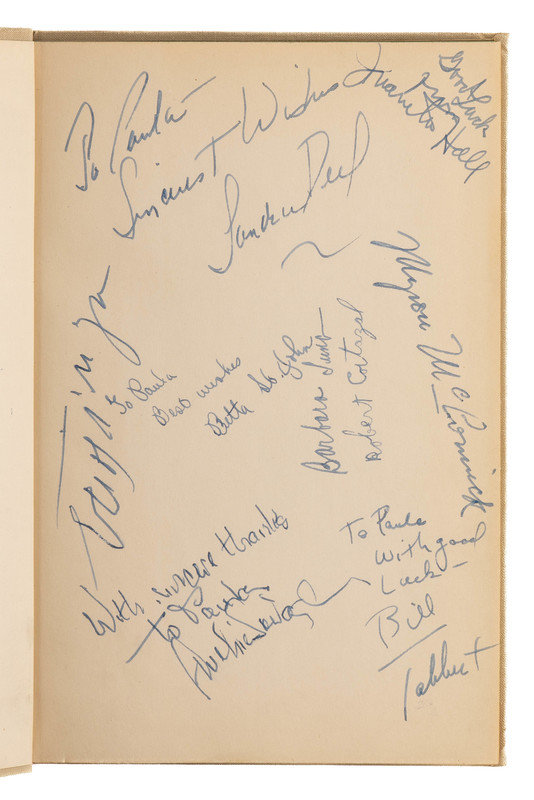 To Paula
Sincerest Wishes
Good Luck
from
Juanita Hall
Myron McCormick
To Paula
Best wishes
Betta St John
Barbara Luna
Robert Cortazal
With sincere thanks
to Paula
To Paula
With good
Luck -
Bill
Tabbert